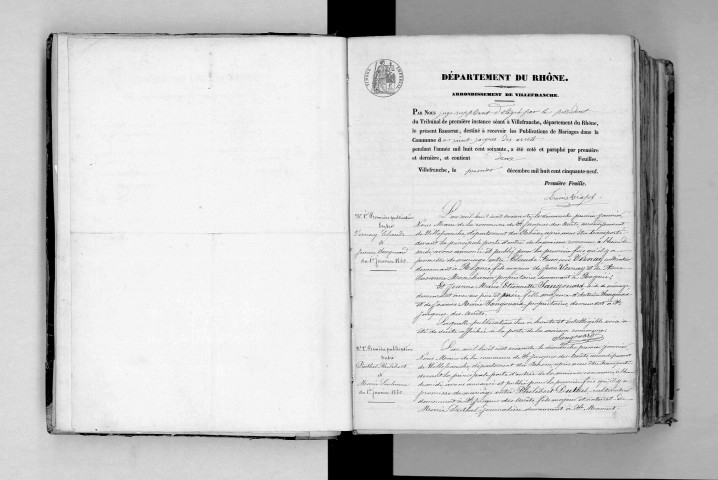 DÉPARTEMENT DU RHÔNE.
ARRONDISSEMENT DE VILLEFRANCHE.
PAR NOUS juge suppléant délégué par le président
du Tribunal de première instance séant à Villefranche, département du Rhône,
le présent REGISTRE, destiné à recevoir les Publications de Mariages dans la
Commune de saint jacques des arrêts
pendant l'année mil huit cent soixante, a été coté et paraphé par première
et dernière, et contient deux Feuilles.
Villefranche, le premier décembre mil huit cent cinquante-neuf.
Première Feuille.
N° 1. Première publication
entre
Claude
&
Jeanne
du 1er janvier 1860.
L'an mil huit cent soixante, le dimanche premier janvier,
Nous Maire de la commune de St Jacques des Arrêts, arrondissement
de Villefranche, département du Rhône, après nous être transporté
devant la principale porte d'entrée de la maison commune, à l'heure de
midi, avons annoncé et publié pour la première fois qu'il y a
promesse de mariage entre Claude François
demeurant à fils majeur de
propriétaire demeurant à
Et Jeanne Marie
demeurant avec ses père et mère, fille
et de Jeanne Marie propriétaires demeurant à St
Jacques des Arrêts.
Laquelle publication lue à haute et intelligible voix a
été de suite affichée à la porte de la maison commune.
N° 2. Première publication
entre
Philibert
&
Marie
du 1er janvier 1860.
L'an mil huit cent soixante le dimanche premier janvier
Nous Maire de la commune de St Jacques des Arrêts arrondissement
de Villefranche, département du Rhône, après nous être transporté
devant la principale porte d'entrée de la maison commune, à l'heure
de midi, avons annoncé et publié pour la première fois qu'il y a
promesse de mariage entre Philibert cultivateur
demeurant à St Jacques des Arrêts, fils majeur et naturel de
Marie journalière demeurant à St Mamert.